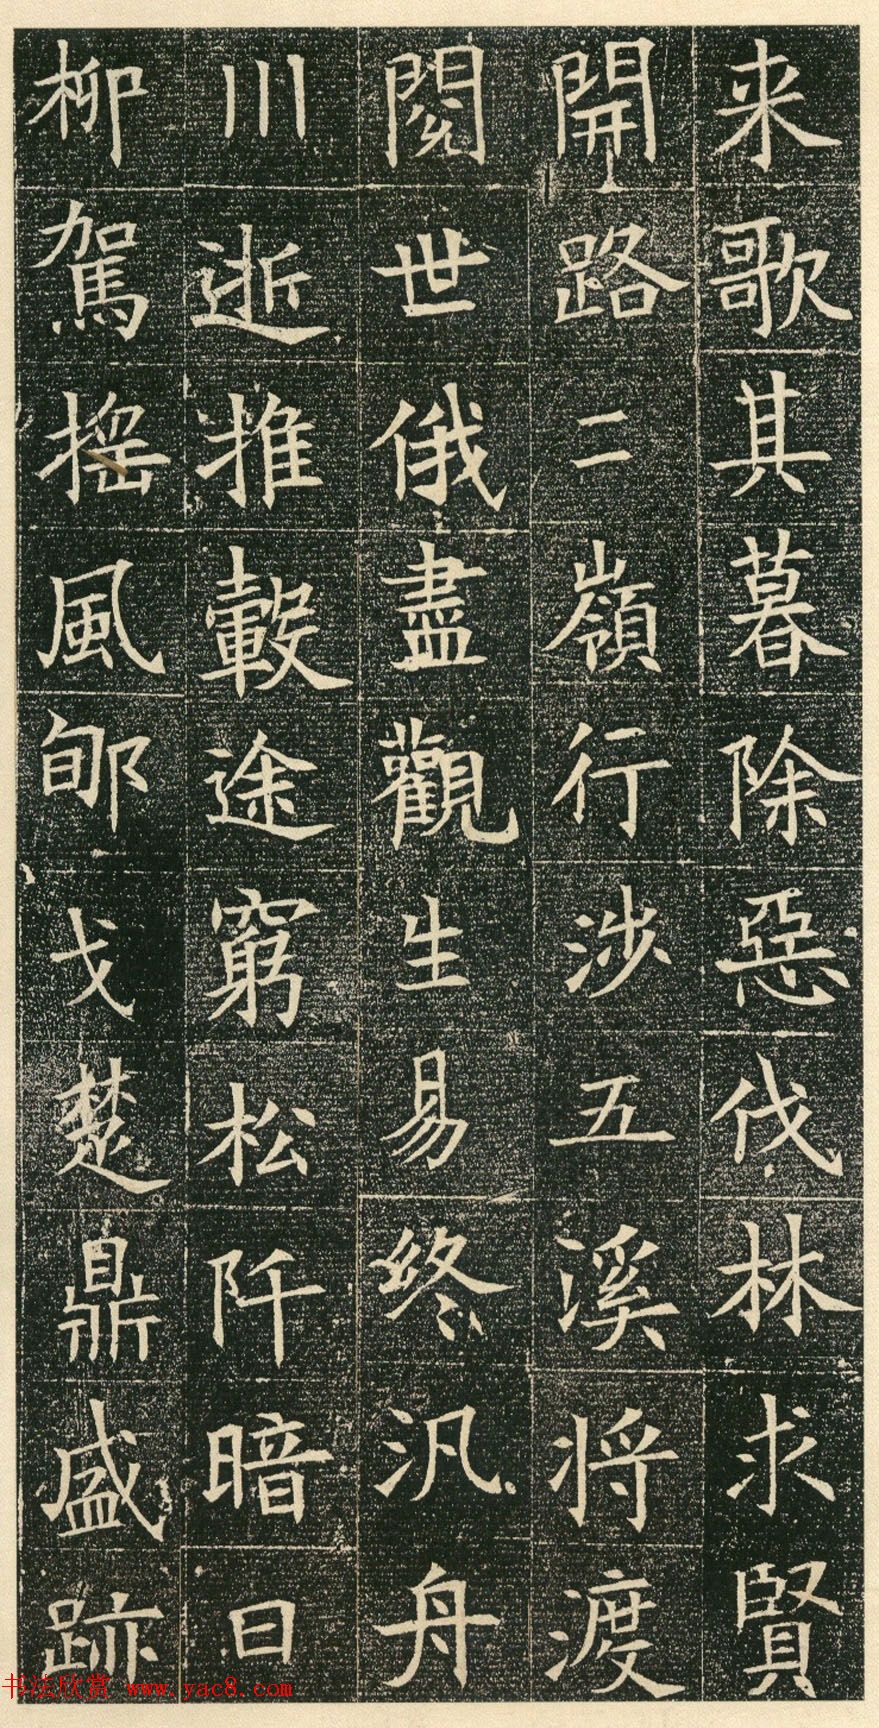 来歌其暮除惡伐林求賢
開路二嶺行涉五溪将渡
閱世俄盡觀生易終汎舟
川逝推轂途窮松阡暗日
柳駕摇風郇戈楚鼎盛跡
书法欣赏 www.yac8.com